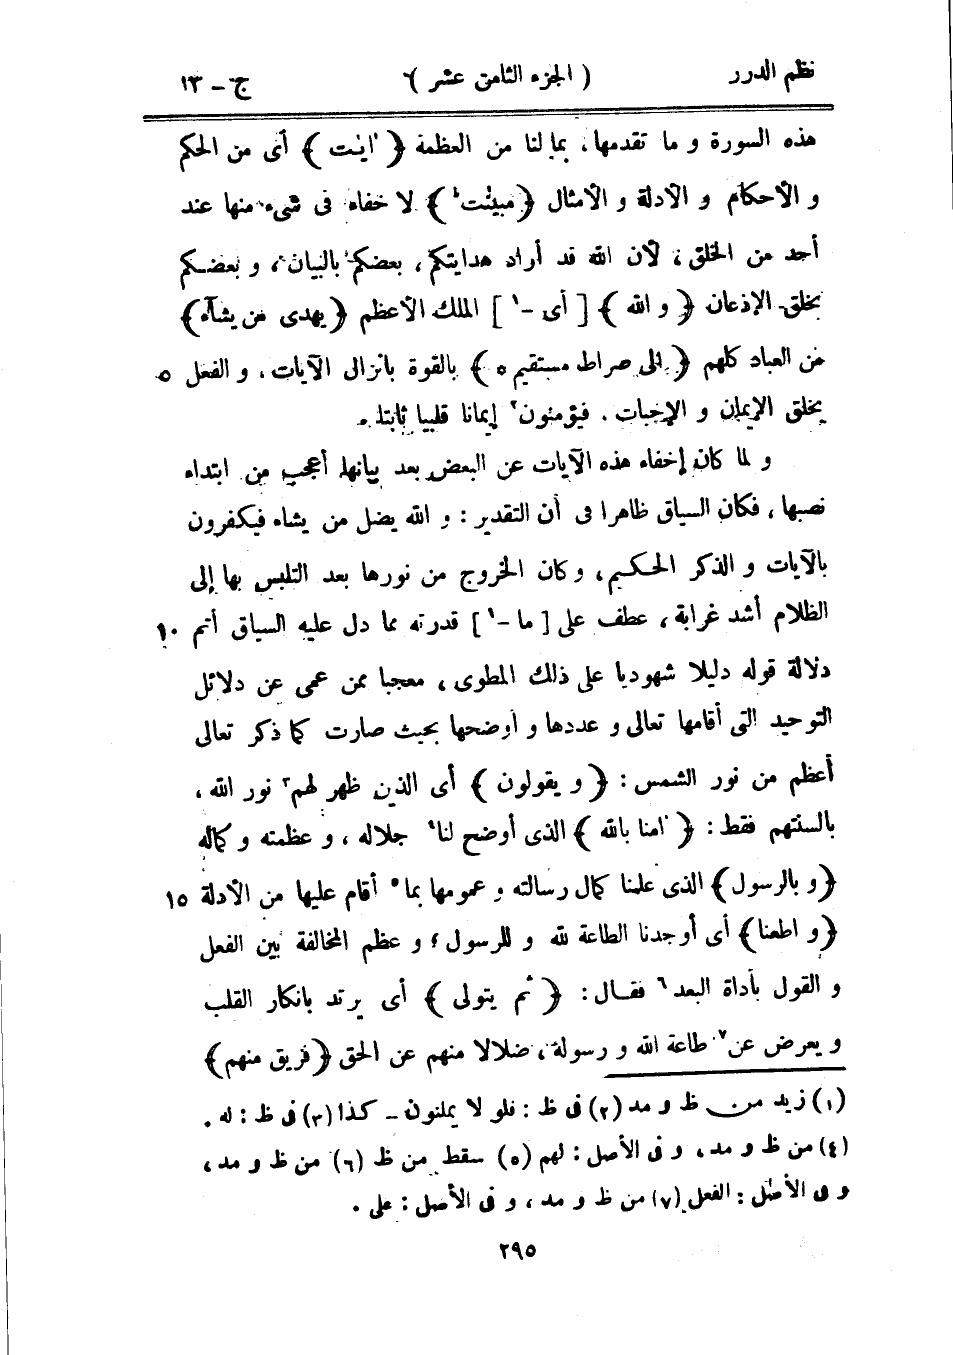 نظم الدرر ( الجزء الثامن عشر ) ج - ١٣
هذه السورة و ما تقدمها، بما لنا من العظمة ﴿ اٰيٰت ﴾ أى من الحكم
و الأحكام و الأدلة و الأمثال ﴿ مبينٰت ﴾ لا خفاء فى شىء منها عند
أحد من الخلق، لأن الله قد أراد هدايتكم، بعضكم بالبيان، و بعضكم
بخلق الإذعان ﴿ و الله ﴾ [ أى -١ ] الملك الأعظم ﴿ يهدى من يشآء ﴾
من العباد كلهم ﴿ الى صراط مستقيم ٥ ﴾ بالقوة بانزال الآيات، و الفعل ٥
بخلق الإيمان و الإخبات، فيؤمنون٢ إيمانا قلبيا ثابتا.
و لما كان إخفاء هذه الآيات عن البعض بعد بيانها أعجب من ابتداء
نصبها، فكان السياق ظاهرا فى أن التقدير: و الله يضل من يشاء فيكفرون
بالآيات و الذكر الحكيم، و كان الخروج من نورها بعد التلبس بها إلى
الظلام أشد غرابة، عطف على [ ما -١ ] قدرته مما دل عليه السياق أتم ١٠
دلالة قوله دليلا شهوديا على ذلك المطوى، معجبا ممن عمى عن دلائل
التوحيد التى أقامها تعالى و عددها و أوضحها بحيث صارت كما ذكر تعالى
أعظم من نور الشمس: ﴿ و يقولون ﴾ أى الذين ظهر لهم٣ نور الله،
بالسنتهم فقط: ﴿ اٰمنا بالله ﴾ الذى أوضح لنا٤ جلاله، و عظمته و كماله
﴿ و بالرسول ﴾ الذى علمنا كمال رسالته و عمومها بما٥ أقام عليها من الأدلة ١٥
﴿ و اطعنا ﴾ أى أوجدنا الطاعة لله و للرسول؛ و عظم المخالفة بين الفعل
و القول بأداة البعد٦ فقال: ﴿ ثم يتولى ﴾ أى يرتد بانكار القلب
و يعرض عن٧ طاعة الله و رسوله، ضلالا منهم عن الحق ﴿ فريق منهم ﴾
(١) زيد من ظ و مد (٢) فى ظ: فلو لا يملنون - كذا (٣) فى ظ: له.
(٤) من ظ و مد، و فى الأصل: لهم (٥) سقط من ظ (٦) من ظ و مد،
و فى الأصل: الفعل (٧) من ظ و مد، و فى الأصل: على.
٢٩٥